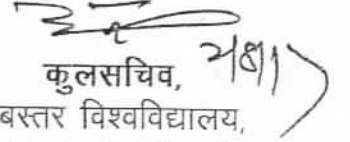 कुलसचिव,
बस्तर विश्वविद्यालय,